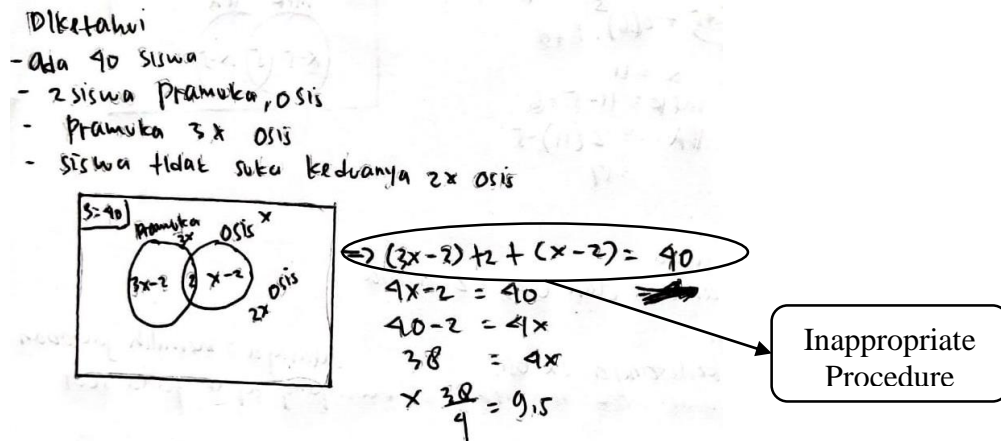 Diketahui
- Ada 40 siswa
- 2 siswa Pramuka, osis
- Pramuka 3x osis
- siswa tidak suka keduanya 2x osis
S=40
Pramuka
3x
Osis x
3x-2
2
x-2
2x osis
=> (3x-2)+2+(x-2) = 40
4x-2 = 40
40-2 = 4x
38 = 4x
x 38/4 = 9,5
Inappropriate
Procedure